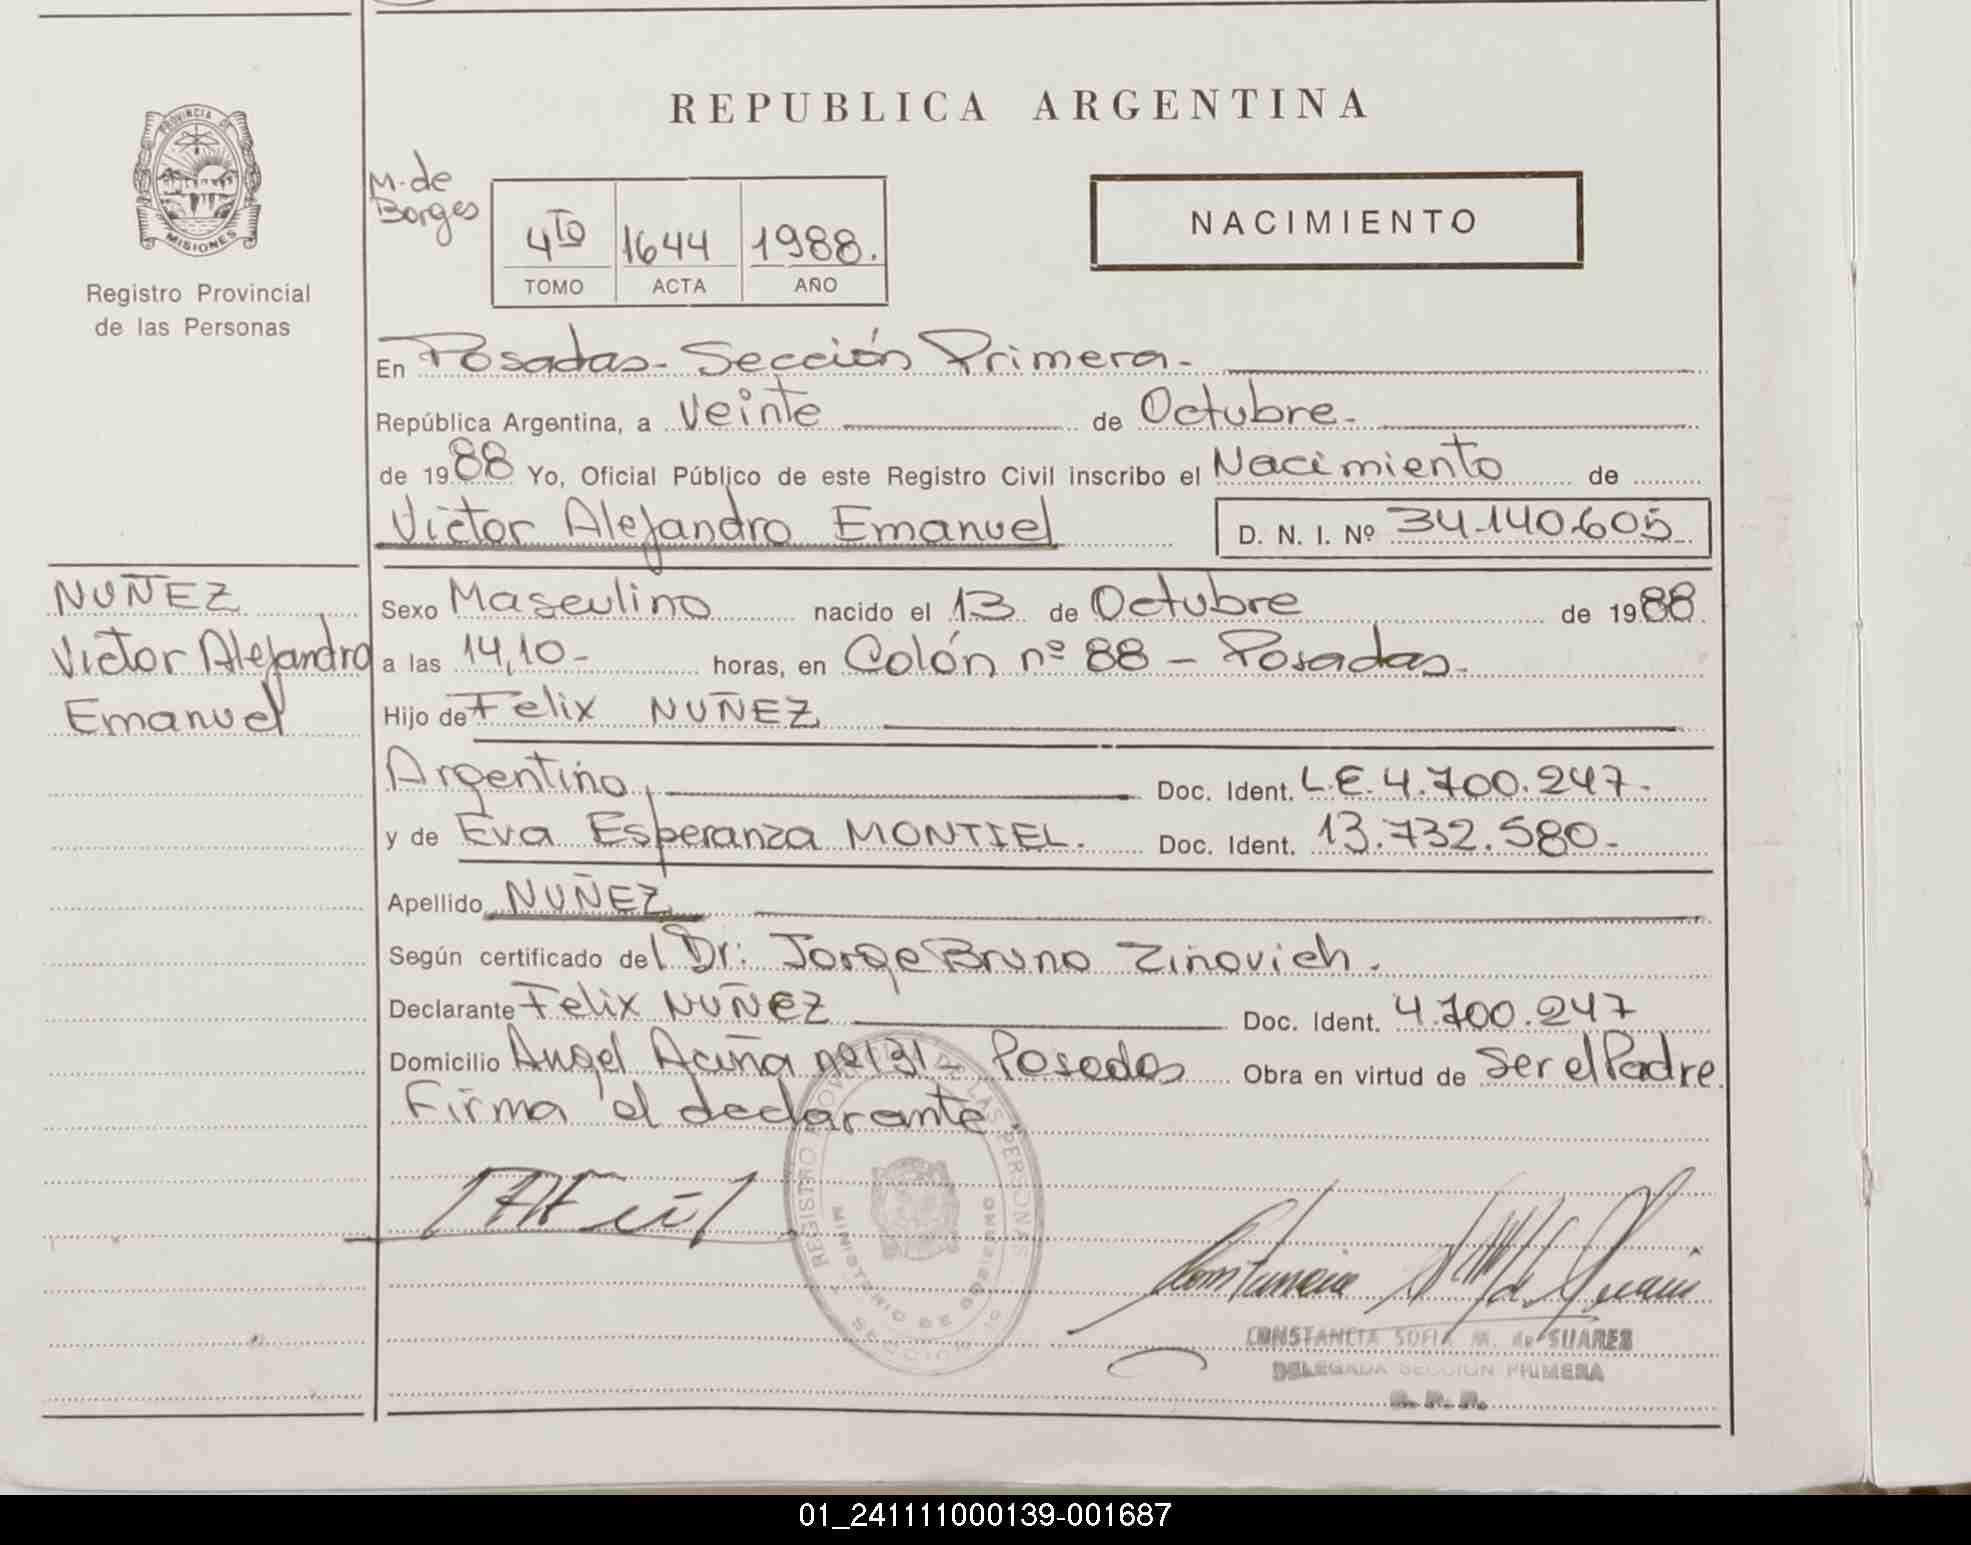 REPUBLICA ARGENTINA
PROVINCIA DE
MISIONES
Registro Provincial
de las Personas
M. de
Borges
4TO 1644 1988.
TOMO ACTA AÑO
NACIMIENTO
En Posadas - Sección Primera -
República Argentina, a Veinte de Octubre.
de 1988 Yo, Oficial Público de este Registro Civil inscribo el Nacimiento de
Victor Alejandro Emanuel D. N. I. Nº 34.140.605
NUÑEZ
Victor Alejandro
Emanuel
Sexo Masculino nacido el 13 de Octubre de 1988
a las 14,10- horas, en Colón nº 88 - Posadas.
Hijo de Felix NUÑEZ
Argentino, Doc. Ident. L.E. 4.700.247.
y de Eva Esperanza MONTIEL. Doc. Ident. 13.732.580-
Apellido NUÑEZ
Según certificado del Dr: Jorge Bruno Zinovich.
Declarante Felix NUÑEZ Doc. Ident. 4.700.247
Domicilio Angel Acuña nº 131- Posadas Obra en virtud de Ser el Padre.
Firma el declarante.
REGISTRO PROVINCIAL DE LAS PERSONAS
MINISTERIO DE GOBIERNO
CONSTANCIA SOFIA M. de SUARES
DELEGADA SECCION PRIMERA
R. P. P.
01_241111000139-001687